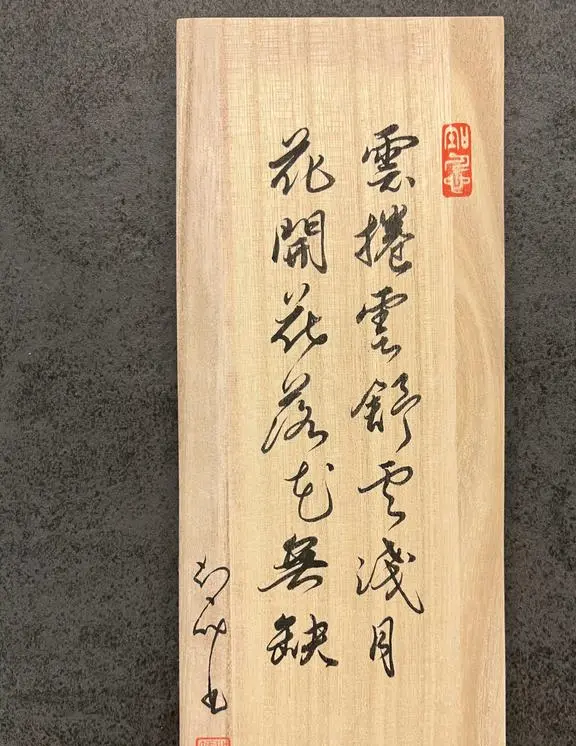 雲捲雲舒雲淺月
花開花落花無缺
如意